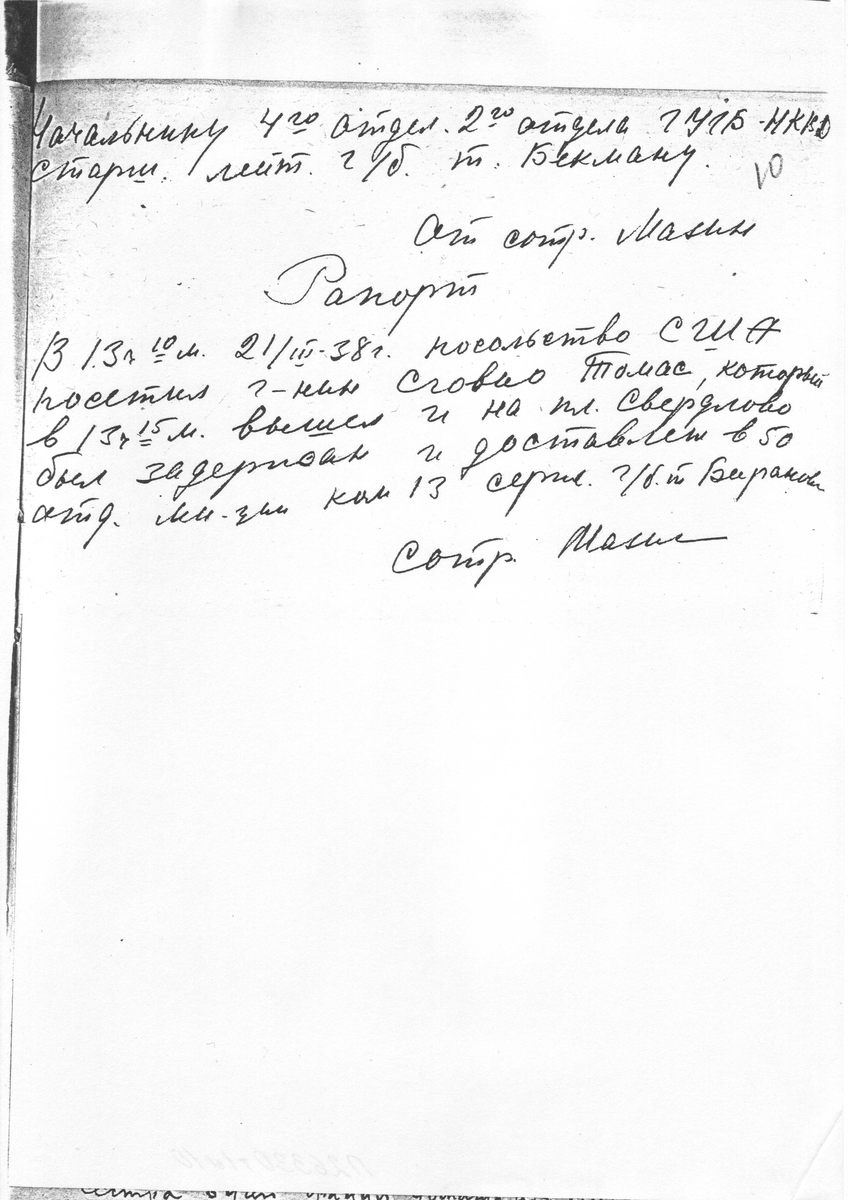 Начальнику 4го отдел. 2го отдела ГУГБ-НКВД
старш. лейт. г/б. т. Бекману.
10
От сотр. Махин
Рапорт
В 13ч 10м. 21/III-38г. посольство США
посетил г-нин Сговио Томас, который
в 13ч 15м. вышел и на пл. Свердлово
был задержан и доставлен в 50
отд. ми-ции ком 13 серж. г/б. т
Сотр. Махин